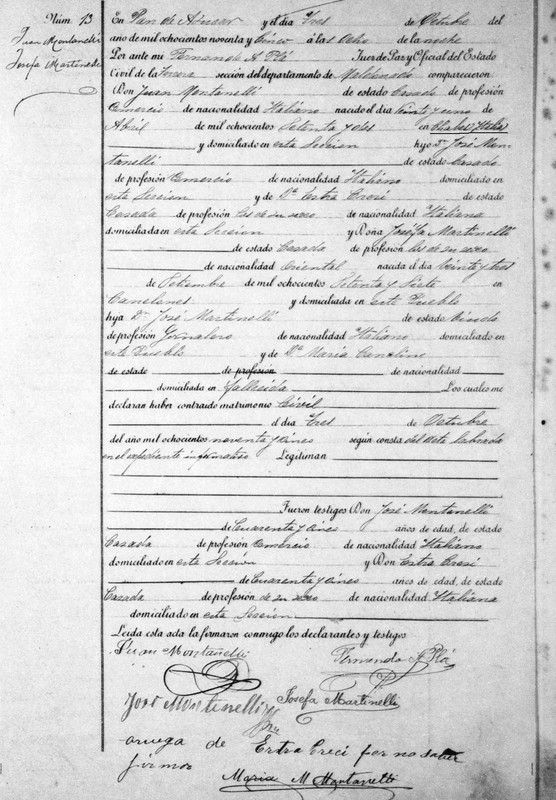 Núm. 13
Juan Montanelli
Josefa Martinelli
En Pan de Azucar y el día tres de Octubre del
año de mil ochocientos noventa y cinco á las ocho de la noche
Por ante mí Fernando A Plá Juez de Paz y Oficial del Estado
Civil de la tercera sección del departamento de Maldonado comparecieron
Don Juan Montanelli de estado Casado de profesión
Comercio de nacionalidad Italiano nacido el día veinte y uno de
Abril de mil ochocientos Setenta y dos en Italia
y domiciliado en esta Seccion hijo Dn José Mon
tanelli de estado Casado
de profesión Comercio de nacionalidad Italiano domiciliado en
esta Seccion y de Da de estado
Casada de profesión las de su sexo de nacionalidad Italiana
domiciliada en esta Seccion y Doña Josefa Martinelli
de estado Casada de profesión las de su sexo
de nacionalidad Oriental nacida el día veinte y tres
de Setiembre de mil ochocientos Setenta y Siete en
Canelones y domiciliada en este Pueblo
hija Dn José Martinelli de estado Viudo
de profesión Jornalero de nacionalidad Italiano domiciliado en
este Pueblo y de Da Maria
de estado de profesión de nacionalidad
domiciliada en fallecida Los cuales me
declaran haber contraido matrimonio Civil
el día tres de Octubre
del año mil ochocientos noventa y cinco según consta del acta labrada
en el espediente informativo Legitiman
Fueron testigos Don José Montanelli
de Cuarenta y cinco años de edad, de estado
Casado de profesión Comercio de nacionalidad Italiano
domiciliado en esta Seccion y Don
de Cuarenta y cinco años de edad, de estado
Casada de profesión de su sexo de nacionalidad Italiana
domiciliado en esta Seccion
Leida esta acta la firmaron conmigo los declarantes y testigos
Juan Montanelli Fernando A Plá
José Montanelli Josefa Martinelli
aruega de Estra Creci por no saber
firmar
Maria M Montanelli